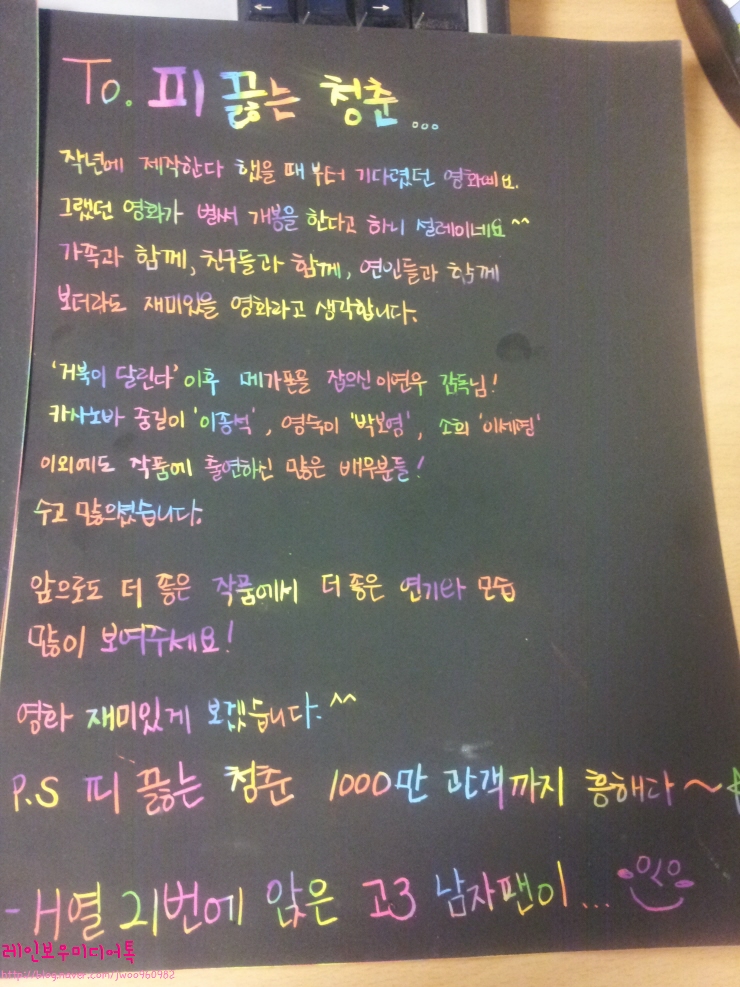 To. 피 끓는 청춘...
작년에 제작한다 했을 때부터 기다렸던 영화예요.
그랬던 영화가 벌써 개봉을 한다고 하니 설레이네요^^
가족과 함께, 친구들과 함께, 연인들과 함께
보더라도 재미있을 영화라고 생각합니다.
'거북이 달린다' 이후 메가폰을 잡으신 이연우 감독님!
카사노바 중길이 '이종석', 영숙이 '박보영', 소희 '이세영'
이외에도 작품에 출연하신 많은 배우분들!
수고 많으셨습니다.
앞으로도 더 좋은 작품에서 더 좋은 연기와 모습
많이 보여주세요!
영화 재미있게 보겠습니다.^^
P.S 피 끓는 청춘 1000만 관객까지 흥해라~
- H열 21번에 앉은 고3 남자팬이...
레인보우미디어톡
http://blog.naver.com/jwoo960982